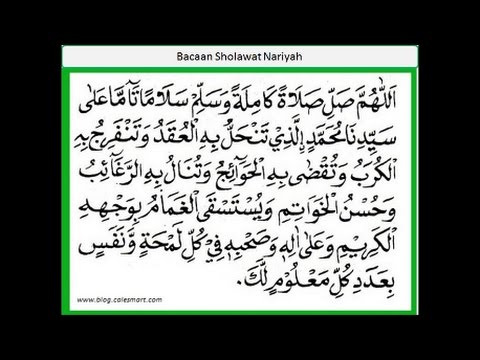 Bacaan Sholawat Nariyah
اَللّٰهُمَّ صَلِّ صَلَاةً كَامِلَةً وَسَلِّمْ سَلَامًا تَآمًّا عَلٰى
سَيِّدِنَا مُحَمَّدٍ الَّذِيْ تَنْحَلُّ بِهِ الْعُقَدُ وَتَنْفَرِجُ بِهِ
الْكُرَبُ وَتُقْضٰى بِهِ الْحَوَآئِجُ وَتُنَالُ بِهِ الرَّغَآئِبُ
وَحُسْنُ الْخَوَاتِمِ وَيُسْتَسْقَى الْغَمَامُ بِوَجْهِهِ
الْكَرِيْمِ وَعَلٰى اٰلِهِ وَصَحْبِهِ فِيْ كُلِّ لَمْحَةٍ وَّنَفَسٍ
بِعَدَدِ كُلِّ مَعْلُوْمٍ لَّكَ.
www.blog.calesmart.com